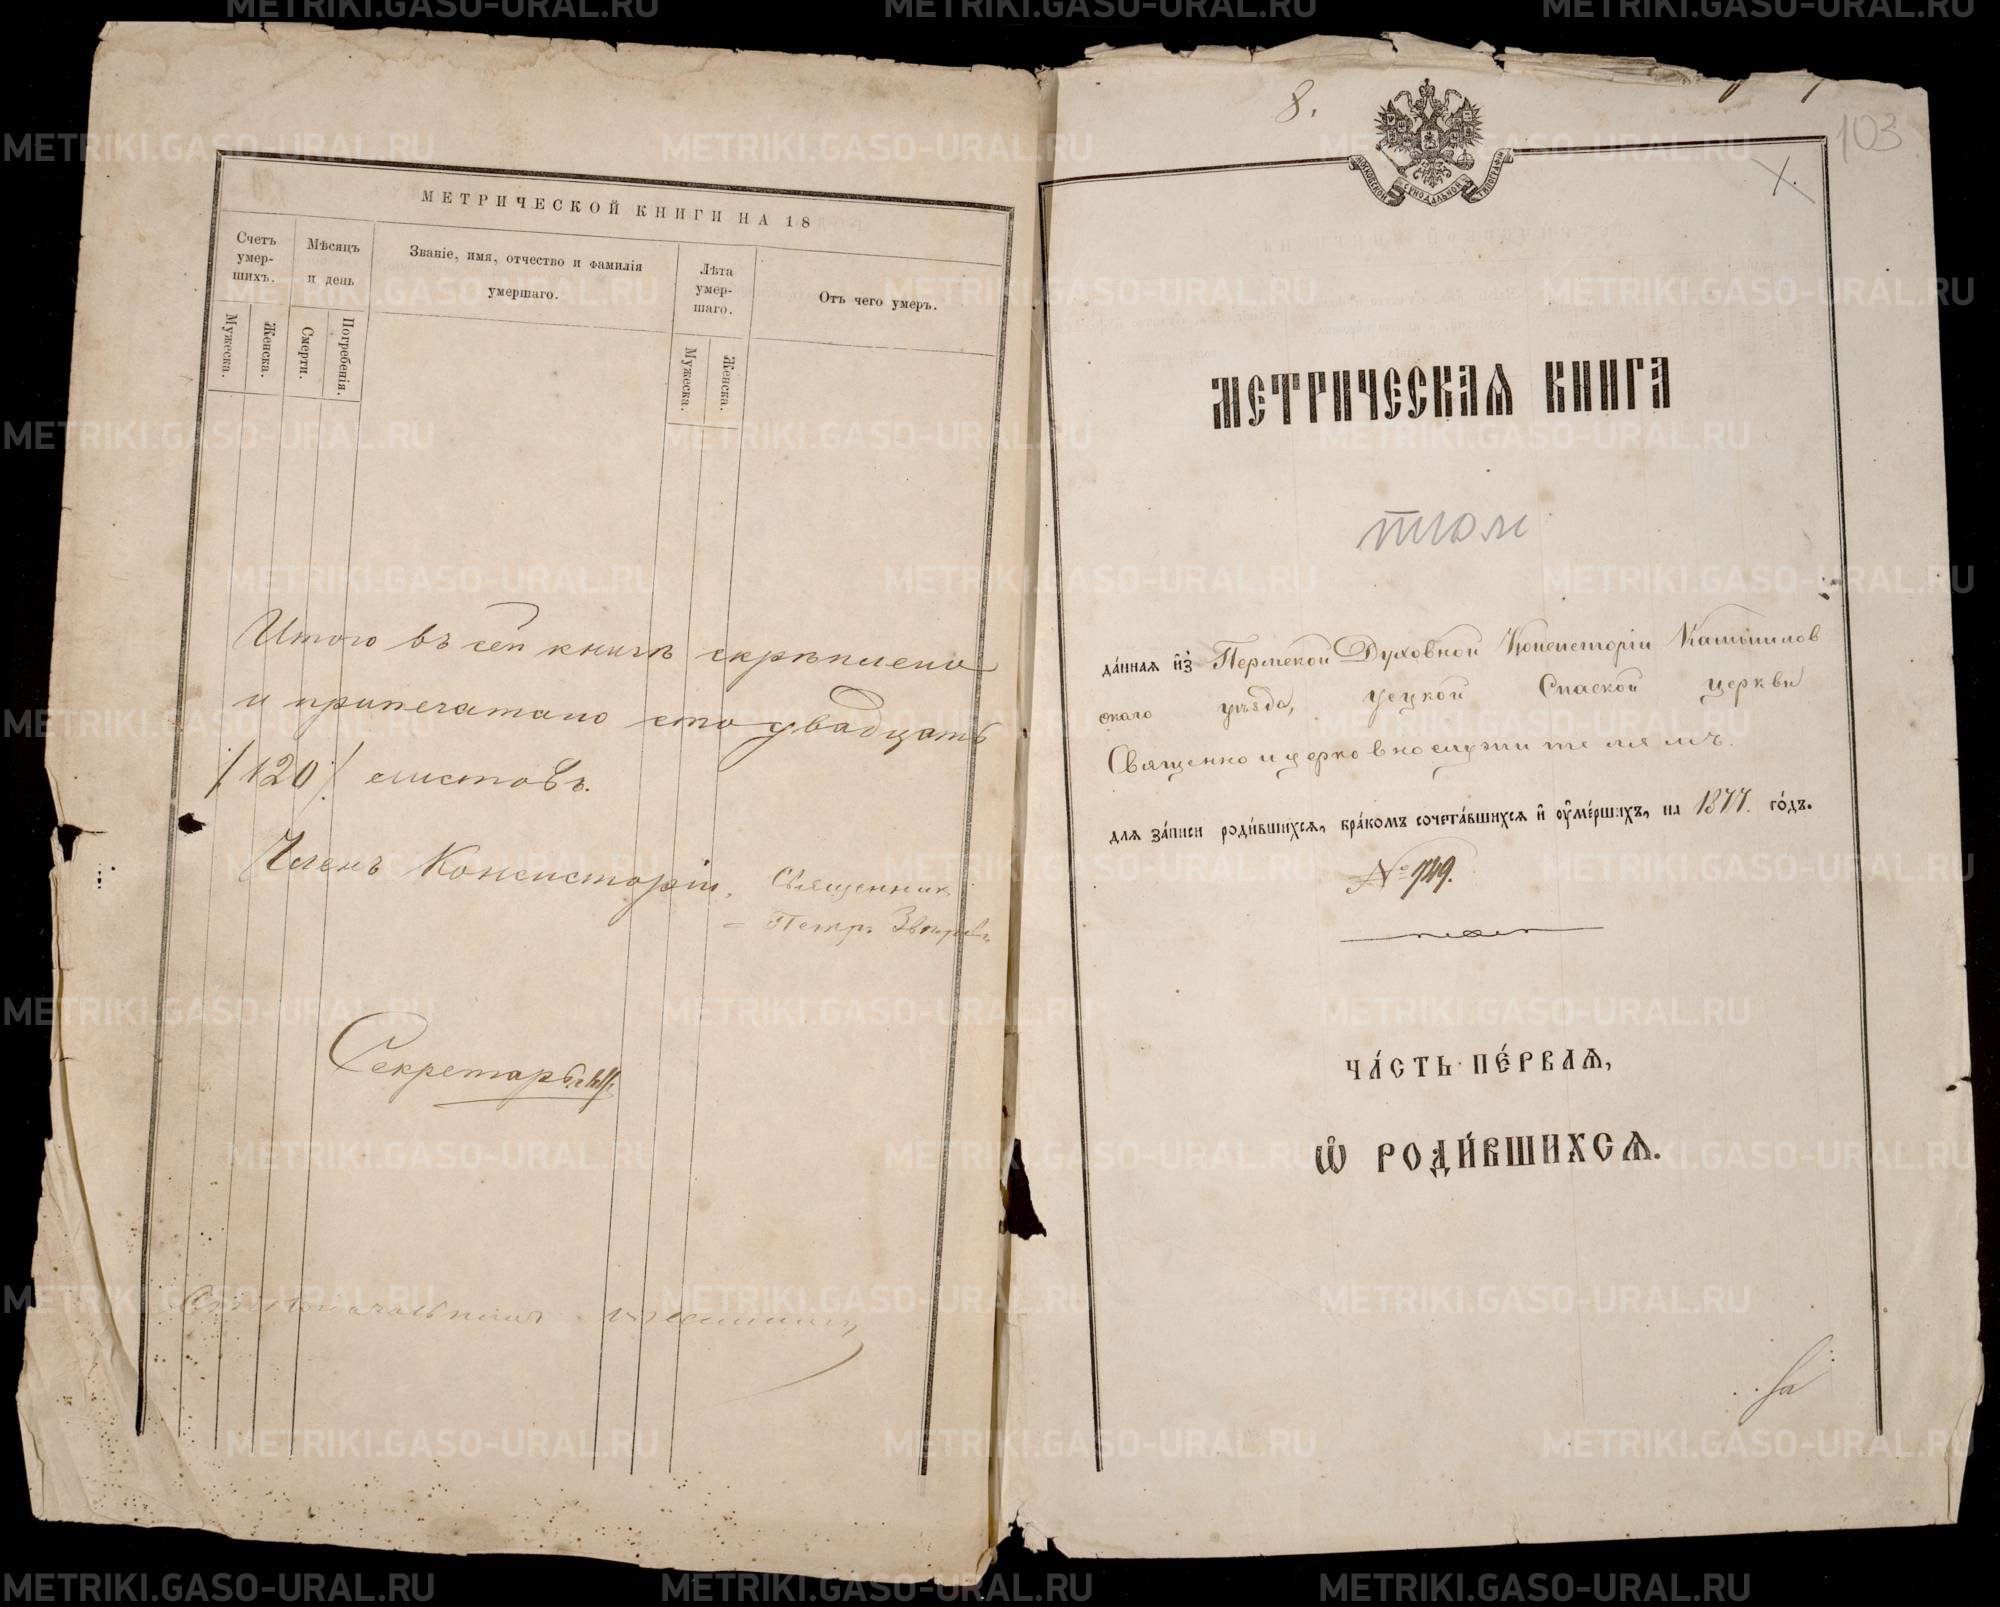 МЕТРИЧЕСКОЙ КНИГИ НА 18
Счетъ умер-
шихъ.
Мѣсяцъ
и день
Званіе, имя, отчество и фамилія
умершаго.
Лѣта
умер-
шаго.
Отъ чего умеръ.
Мужеска.
Женска.
Смерти.
Погребенія.
Мужеска.
Женска.
Итого въ сей книгѣ скрѣплено
и припечатано сто двадцать
/120/ листовъ.
Членъ Консисторіи, Священникъ
Петръ
Секретарь
Столоначальникъ
8.
103
1.
МОСКОВСКОЙ СѴНОДАЛЬНОЙ ТИПОГРАФІИ
МЕТРИЧЕСКАЯ КНИГА
да́нная и҆з̾ Пермской Духовной Консисторіи Камышлов
скаго уѣзда, Уецкой Спаской церкви
Священно и церковнослужителямъ.
для за́писи роди́вшихся, бра́комъ сочета́вшихся и҆ ᲂу҆ме́ршихъ, на 1877. го́дъ.
№ 749.
ЧА́СТЬ ПЕ́РВАЯ,
Ѽ РОДИ́ВШИХСЯ.
METRIKI.GASO-URAL.RU